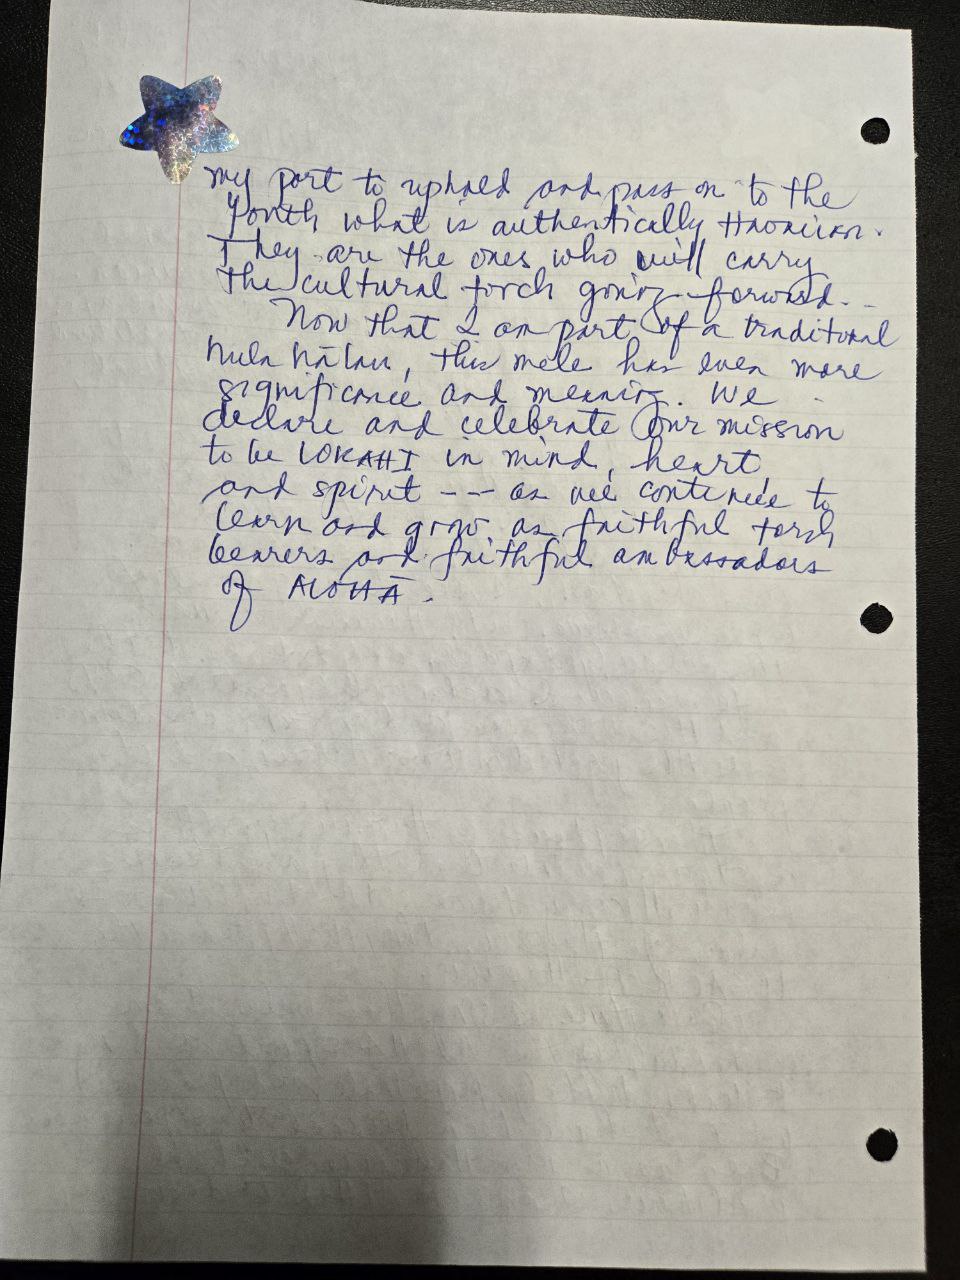 my part to uphold and pass on to the
youth what is authentically Hawaiian.
They are the ones who will carry
the cultural torch going forward. -
Now that I am part of a traditonal
hula hālau, this mele has even more
significance and meaning. We
declare and celebrate our mission
to be LOKAHI in mind, heart
and spirit --- as we continue to
learn and grow as faithful torch
bearers and faithful ambassadors
of ALOHĀ.